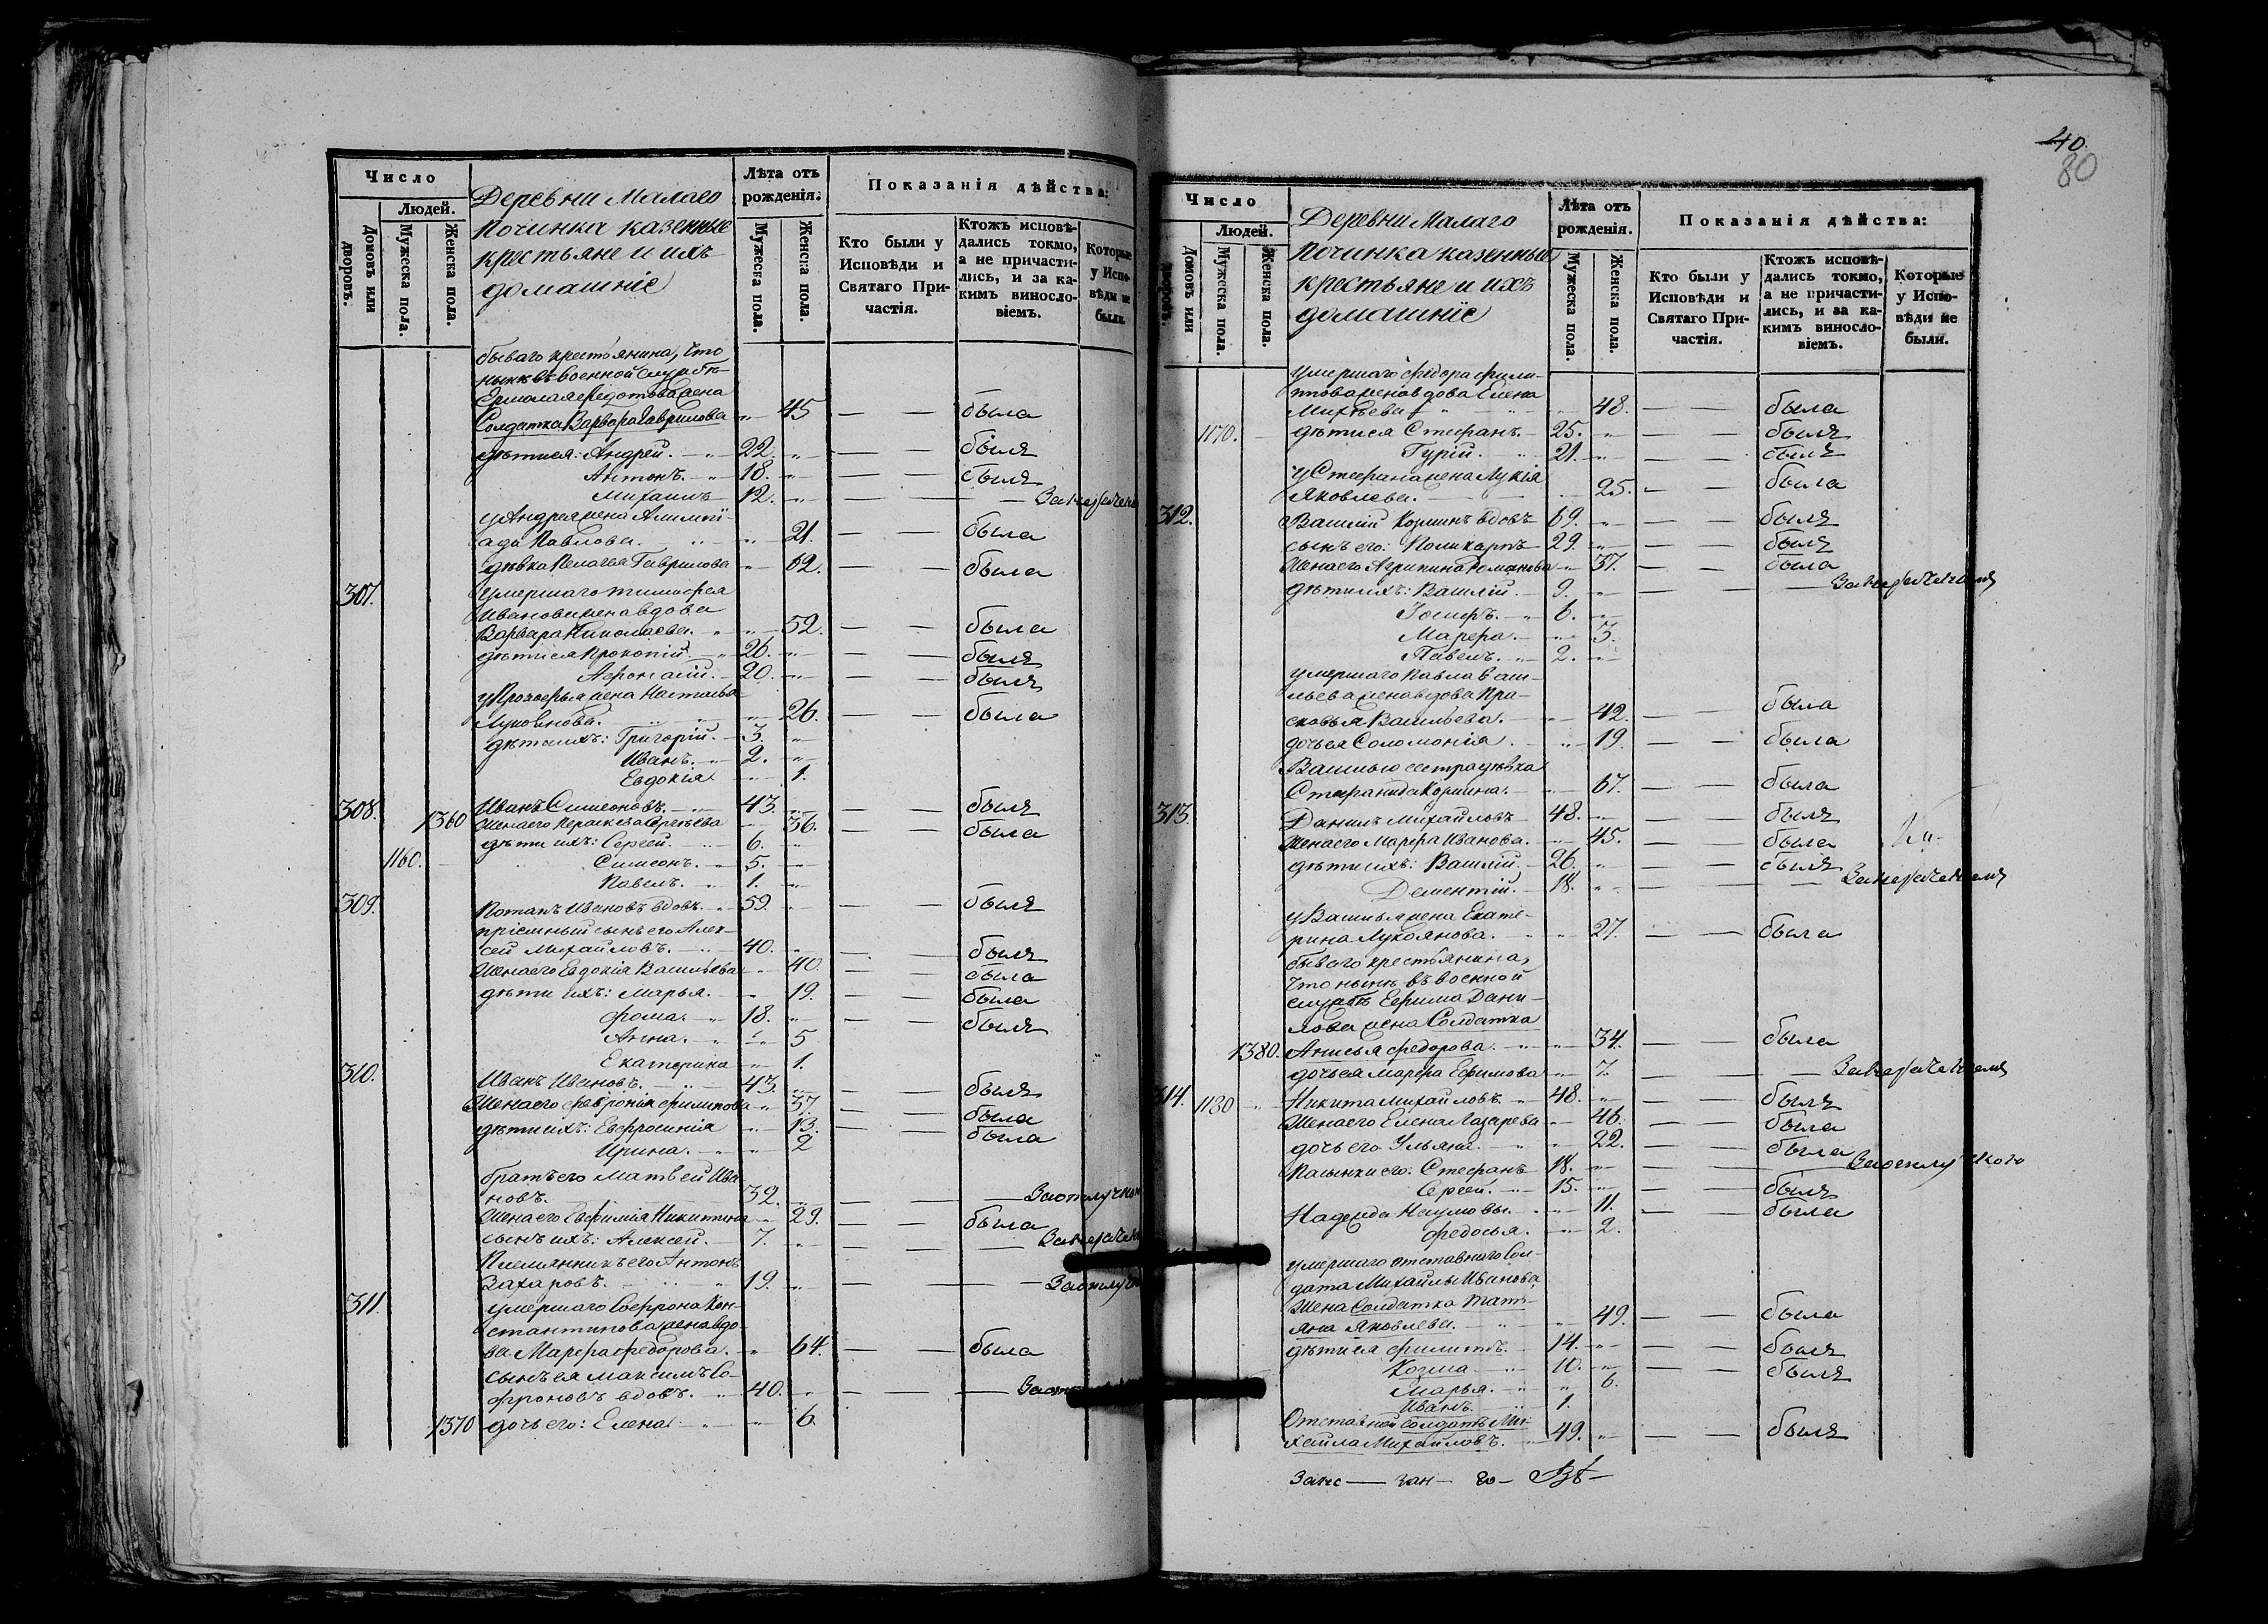 Число
Людей.
Домовъ или дворовъ.
Мужеска пола.
Женска пола.
Деревни Малаго
Починка казенные
крестьяне и ихъ
домашніе
Лѣта отъ рожденія.
Мужеска пола.
Женска пола.
Показанія дѣйства:
Кто были у Исповѣди и Святаго Причастія.
Ктожъ исповѣдались токмо, а не причастились, и за какимъ винословіемъ.
Которые у Исповѣди не были.
бываго крестьянина, что
нынѣ въ военной службѣ
Ермолая Федотова жена
Солдатка Варвара Гаврилова 45 — — была
дѣти ея: Андрей. 22. — — былъ
Антонъ. 18. — — былъ
Михаилъ 12. — —
у Андрея жена Алимпі-
ада Павлова. 21. — — была
дѣвка Пелагея Гаврилова 62. — — была
307. умершаго Тимофея
Иванова жена вдова
Варвара Николаева. 52. — — была
дѣти ея Прокопій. 26. — — былъ
Афонасій. 20. — — былъ
у Прокофья жена Настасья
Лукоянова. 26. — — была
дѣти ихъ: Григорій. 3.
Иванъ. 2.
Евдокія. 1.
308. Иванъ Симеоновъ. 43. — — былъ
1360 Жена его Параскева Сергѣева 36. — — была
дѣти ихъ: Сергей. 6.
1160. Симеонъ. 5.
Павелъ. 1.
309. Потапъ Ивановъ вдовъ. 59. — — былъ
пріемный сынъ его Алек-
сей Михайловъ. 40. — — былъ
Жена его Евдокія Васильева 40. — — была
дѣти ихъ: Марья. 19. — — была
Фома. 18. — — былъ
Анна. 5
Екатерина 1.
310. Иванъ Ивановъ. 43. — — былъ
Жена его Февронія Филипова 37. — — была
дѣти ихъ: Евфросинія 13. — — была
Ирина. 2
братъ его Матвей Ива-
новъ. 32. — — Заотлучкою
Жена его Евфимія Никитина 29. — — была
сынъ ихъ: Алексей. 7. — —
Племянникъ его Антонъ
Захаровъ. 19. — — Заотлуч
311. умершаго Софрона Кон-
стантинова жена вдо-
ва Марфа Федорова. 64. — — была
сынъ ея Максимъ Со-
фроновъ вдовъ. 40. — — Заот
1370 дочь его: Елена 6.
40.
80
Число
Людей.
Домовъ или дворовъ.
Мужеска пола.
Женска пола.
Деревни Малаго
Починка казенные
крестьяне и ихъ
домашніе
Лѣта отъ рожденія.
Мужеска пола.
Женска пола.
Показанія дѣйства:
Кто были у Исповѣди и Святаго Причастія.
Ктожъ исповѣдались токмо, а не причастились, и за какимъ винословіемъ.
Которые у Исповѣди не были.
умершаго Федора Фили-
ппова жена вдова Елена
Михѣева 48. — — была
1170. дѣти ея Стефанъ. 25. — — былъ
Гурій. 21. — — былъ
у Стефана жена Лукія
Яковлева. 25. — — была
312. Василій Козминъ вдовъ 69. — — былъ
сынъ его: Поликарпъ 29. — — былъ
Жена его Агрипина Романова 37. — — была
дѣти ихъ: Василій. 9. — —
Іосифъ. 6.
Марфа. 3.
Павелъ. 2.
умершаго Павла Васи-
льева жена вдова Пра-
сковья Васильева. 42. — — была
дочь ея Соломонія. 19. — — была
Василью сестра дѣвка
Степанида Козмина. 67. — — была
313. Данилъ Михайловъ 48. — — былъ
Жена его Марфа Иванова. 45. — — была
дѣти ихъ: Василій. 26. — — былъ
Дементій. 18. — —
у Василья жена Екате-
рина Лукоянова. 27. — — была
бываго крестьянина,
что нынѣ въ военной
службѣ Ефима Дани-
лова жена Солдатка
1380. Анисья Федорова. 34. — — была
дочь ея Марфа Ефимова 7. — —
314. 1180 Никита Михайловъ. 48. — — былъ
Жена его Елена Лазарева 46. — — была
дочь его Ульяна. 22. — — была
Пасынки его: Стефанъ 18. — — Заотлучкою
Сергей. 15. — — былъ
Надежда Наумовы. 11. — — была
Федосья. 2.
умершаго отставнаго Сол-
дата Михайлы Иванова
Жена Солдатка Тать-
яна Яковлева. 49. — — была
дѣти ея Филиппъ. 14. — — былъ
Козма 10. — — былъ
Марья. 6.
Иванъ. 1.
Отставной солдатъ Ми-
хайла Михайловъ. 49. — — былъ